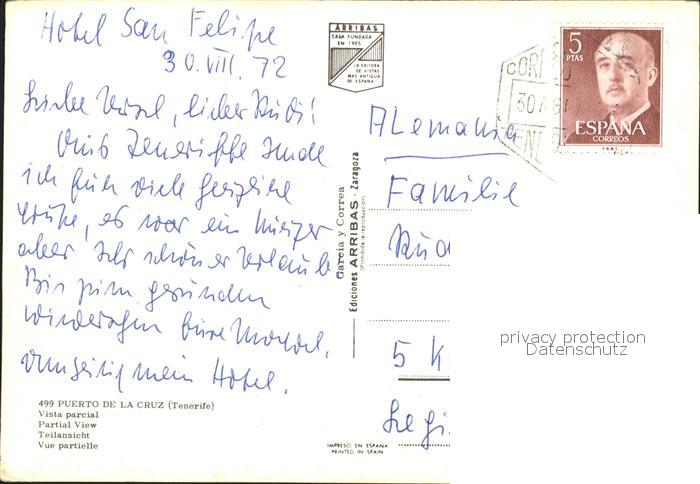 Hotel San Felipe
30.VIII.72
Liebe Ursel, lieber Rudi!
Aus Teneriffa sende
ich Euch viele herzliche
Grüße, es war ein kurzer
aber sehr schöner Urlaub
Bis zum gesunden
Wiedersehen Eure
umseitig mein Hotel.
499 PUERTO DE LA CRUZ (Tenerife)
Vista parcial
Partial View
Teilansicht
Vue partielle
ARRIBAS
CASA FUNDADA
EN 1905
LA EDITORA
DE VISTAS
MAS ANTIGUA
DE ESPAÑA
Garcia y Correa
Ediciones ARRIBAS - Zaragoza
(Prohibida la reproducción)
IMPRESO EN ESPAÑA
PRINTED IN SPAIN
5
PTAS
ESPAÑA
CORREOS
CORREO
30 A
Alemania
Familie
Rud
5 K
privacy protection
Datenschutz